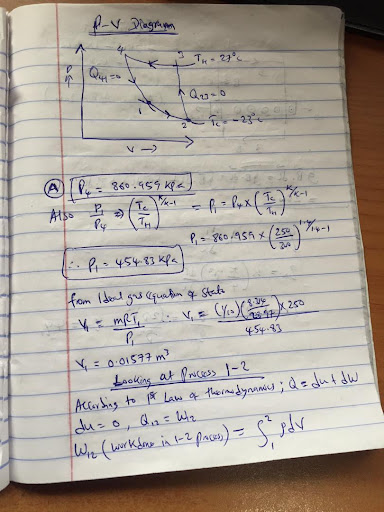 P-V Diagram
4
3
TH = 27°C
P
Q41=0
Q23=0
1
2
Tc = -23°C
V →
Ⓐ P4 = 860.959 kPa
Also P1/P4 ⇒ (Tc/TH)^K/K-1 = P1 = P4 × (Tc/TH)^K/K-1
P1 = 860.959 × (250/300)^1.4/1.4-1
∴ P1 = 454.83 kPa
from Ideal gas equation of State
V1 = mRT1/P1 ∴ V1 = (1/10)(8.314/28.97) × 250/454.83
V1 = 0.01577 m³
Looking at process 1-2
According to 1st Law of thermodynamics; Q = du + dW
du = 0, Q12 = W12
W12 (work done in 1-2 process) = ∫₁² pdV